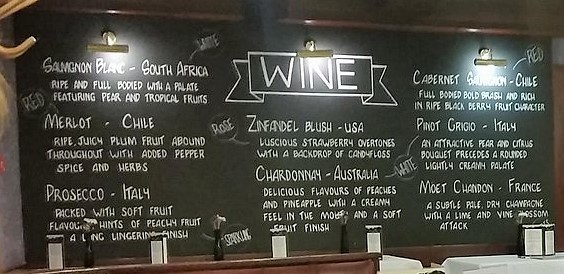 WHITE
SAUVIGNON BLANC - SOUTH AFRICA
RIPE AND FULL BODIED WITH A PALATE
FEATURING PEAR AND TROPICAL FRUITS
RED
MERLOT - CHILE
RIPE, JUICY PLUM FRUIT ABOUND
THROUGHOUT WITH ADDED PEPPER
SPICE AND HERBS
PROSECCO - ITALY
PACKED WITH SOFT FRUIT
FLAVOUR, HINTS OF PEACHY FRUIT
A LONG LINGERING FINISH
SPARKLING
WINE
ROSE
ZINFANDEL BLUSH - USA
LUSCIOUS STRAWBERRY OVERTONES
WITH A BACKDROP OF CANDYFLOSS
CHARDONNAY - AUSTRALIA
DELICIOUS FLAVOURS OF PEACHES
AND PINEAPPLE WITH A CREAMY
FEEL IN THE MOUTH AND A SOFT
FRUIT FINISH
WHITE
RED
CABERNET SAUVIGNON - CHILE
FULL BODIED BOLD BRASH AND RICH
IN RIPE BLACK BERRY FRUIT CHARACTER
PINOT GRIGIO - ITALY
AN ATTRACTIVE PEAR AND CITRUS
BOUQUET PRECEDES A ROUNDED
LIGHTLY CREAMY PALATE
MOET CHANDON - FRANCE
A SUBTLE PALE, DRY CHAMPAGNE
WITH A LIME AND VINE BLOSSOM
ATTACK